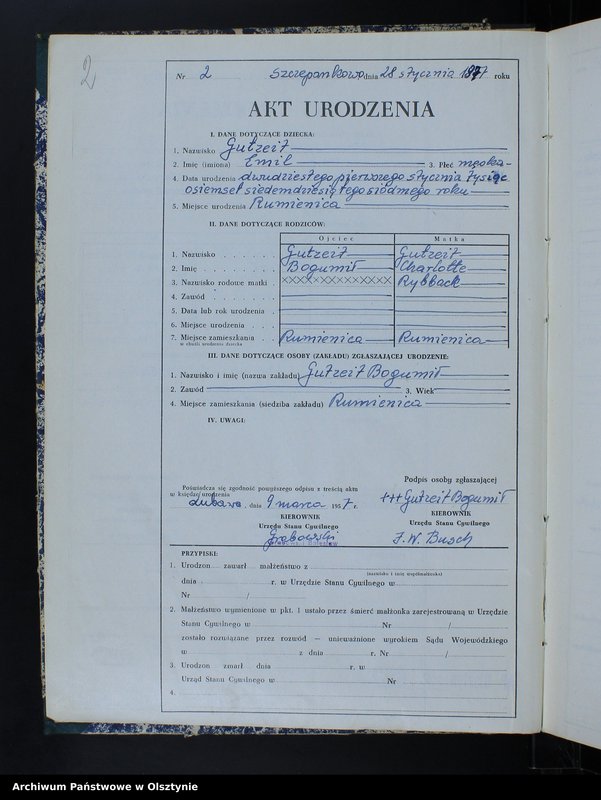 2
Nr 2 Szczepankowo dnia 28 stycznia 1877 roku
AKT URODZENIA
I. DANE DOTYCZĄCE DZIECKA:
1. Nazwisko Gutzeit
2. Imię (imiona) Emil 3. Płeć męska
4. Data urodzenia dwudziestego pierwszego stycznia tysiąc
osiemset siedemdziesiątego siódmego roku
5. Miejsce urodzenia Rumienica
II. DANE DOTYCZĄCE RODZICÓW:
Ojciec Matka
1. Nazwisko Gutzeit Gutzeit
2. Imię Bogumił Charlotte
3. Nazwisko rodowe matki xxxxxxxxxxxxxx Rybback
4. Zawód
5. Data lub rok urodzenia
6. Miejsce urodzenia
7. Miejsce zamieszkania Rumienica Rumienica
w chwili urodzenia dziecka
III. DANE DOTYCZĄCE OSOBY (ZAKŁADU) ZGŁASZAJĄCEJ URODZENIE:
1. Nazwisko i imię (nazwa zakładu) Gutzeit Bogumił
2. Zawód 3. Wiek
4. Miejsce zamieszkania (siedziba zakładu) Rumienica
IV. UWAGI:
Poświadcza się zgodność powyższego odpisu z treścią aktu
w księdze urodzenia
Lubawa, dnia 9 marca 1957 r.
KIEROWNIK
Urzędu Stanu Cywilnego
Grabowski
Podpis osoby zgłaszającej
+++ Gutzeit Bogumił
KIEROWNIK
Urzędu Stanu Cywilnego
F. W. Busch
PRZYPISKI:
1. Urodzon zawarł małżeństwo z
(nazwisko i imię współmałżonka)
dnia r. w Urzędzie Stanu Cywilnego w
Nr /
2. Małżeństwo wymienione w pkt. 1 ustało przez śmierć małżonka zarejestrowaną w Urzędzie
Stanu Cywilnego w Nr /
zostało rozwiązane przez rozwód — unieważnione wyrokiem Sądu Wojewódzkiego
w z dnia r. Nr /
3. Urodzon zmarł dnia r. w
Urząd Stanu Cywilnego w Nr
4.
Archiwum Państwowe w Olsztynie